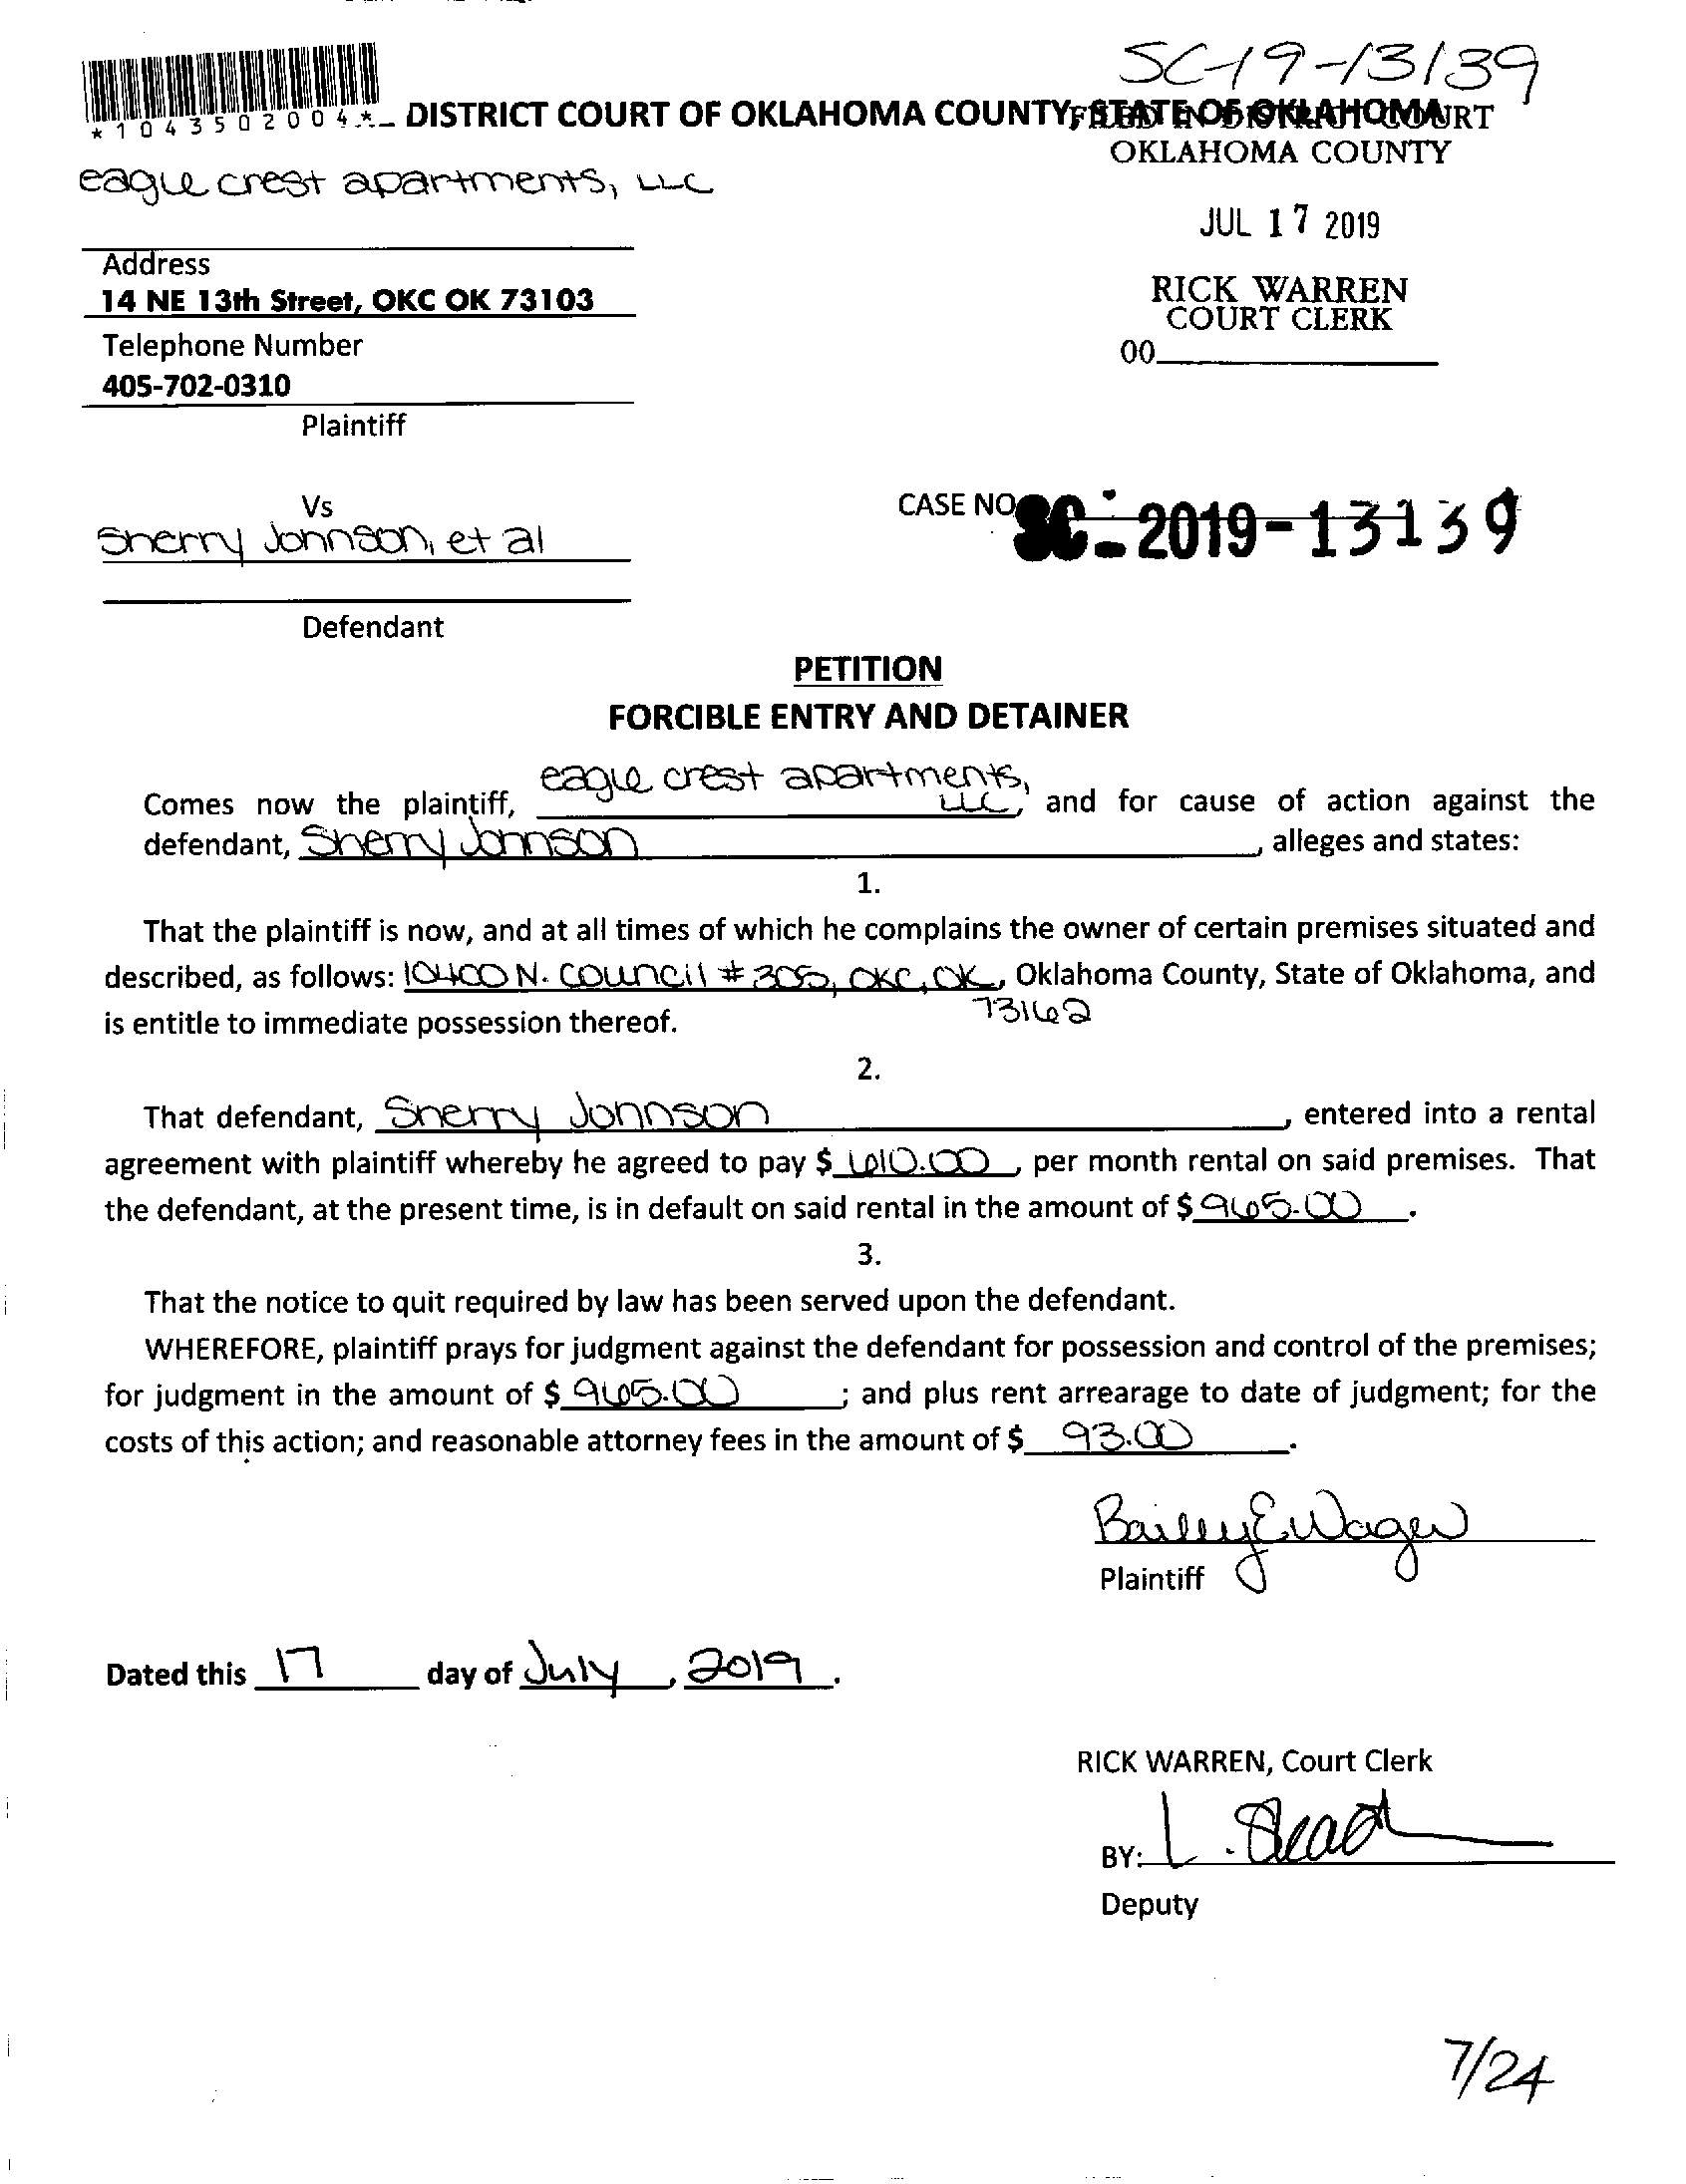 SC-19-13139
*1043502004*
DISTRICT COURT OF OKLAHOMA COUNTY, STATE OF OKLAHOMA
FILED IN DISTRICT COURT
OKLAHOMA COUNTY
eagle crest apartments, LLC
JUL 17 2019
Address
14 NE 13th Street, OKC OK 73103
RICK WARREN
COURT CLERK
Telephone Number
00
405-702-0310
Plaintiff
Vs
CASE NO SC-2019-13139
Sherry Johnson, et al
Defendant
PETITION
FORCIBLE ENTRY AND DETAINER
Comes now the plaintiff, eagle crest apartments, LLC, and for cause of action against the
defendant, Sherry Johnson, alleges and states:
1.
That the plaintiff is now, and at all times of which he complains the owner of certain premises situated and
described, as follows: 10400 N. Council #305, OKC, OK, Oklahoma County, State of Oklahoma, and
73162
is entitle to immediate possession thereof.
2.
That defendant, Sherry Johnson, entered into a rental
agreement with plaintiff whereby he agreed to pay $ 610.00, per month rental on said premises. That
the defendant, at the present time, is in default on said rental in the amount of $ 965.00.
3.
That the notice to quit required by law has been served upon the defendant.
WHEREFORE, plaintiff prays for judgment against the defendant for possession and control of the premises;
for judgment in the amount of $ 965.00; and plus rent arrearage to date of judgment; for the
costs of this action; and reasonable attorney fees in the amount of $ 93.00.
Bailey E Wager
Plaintiff
Dated this 17 day of July, 2019.
RICK WARREN, Court Clerk
BY: L.
Deputy
7/24